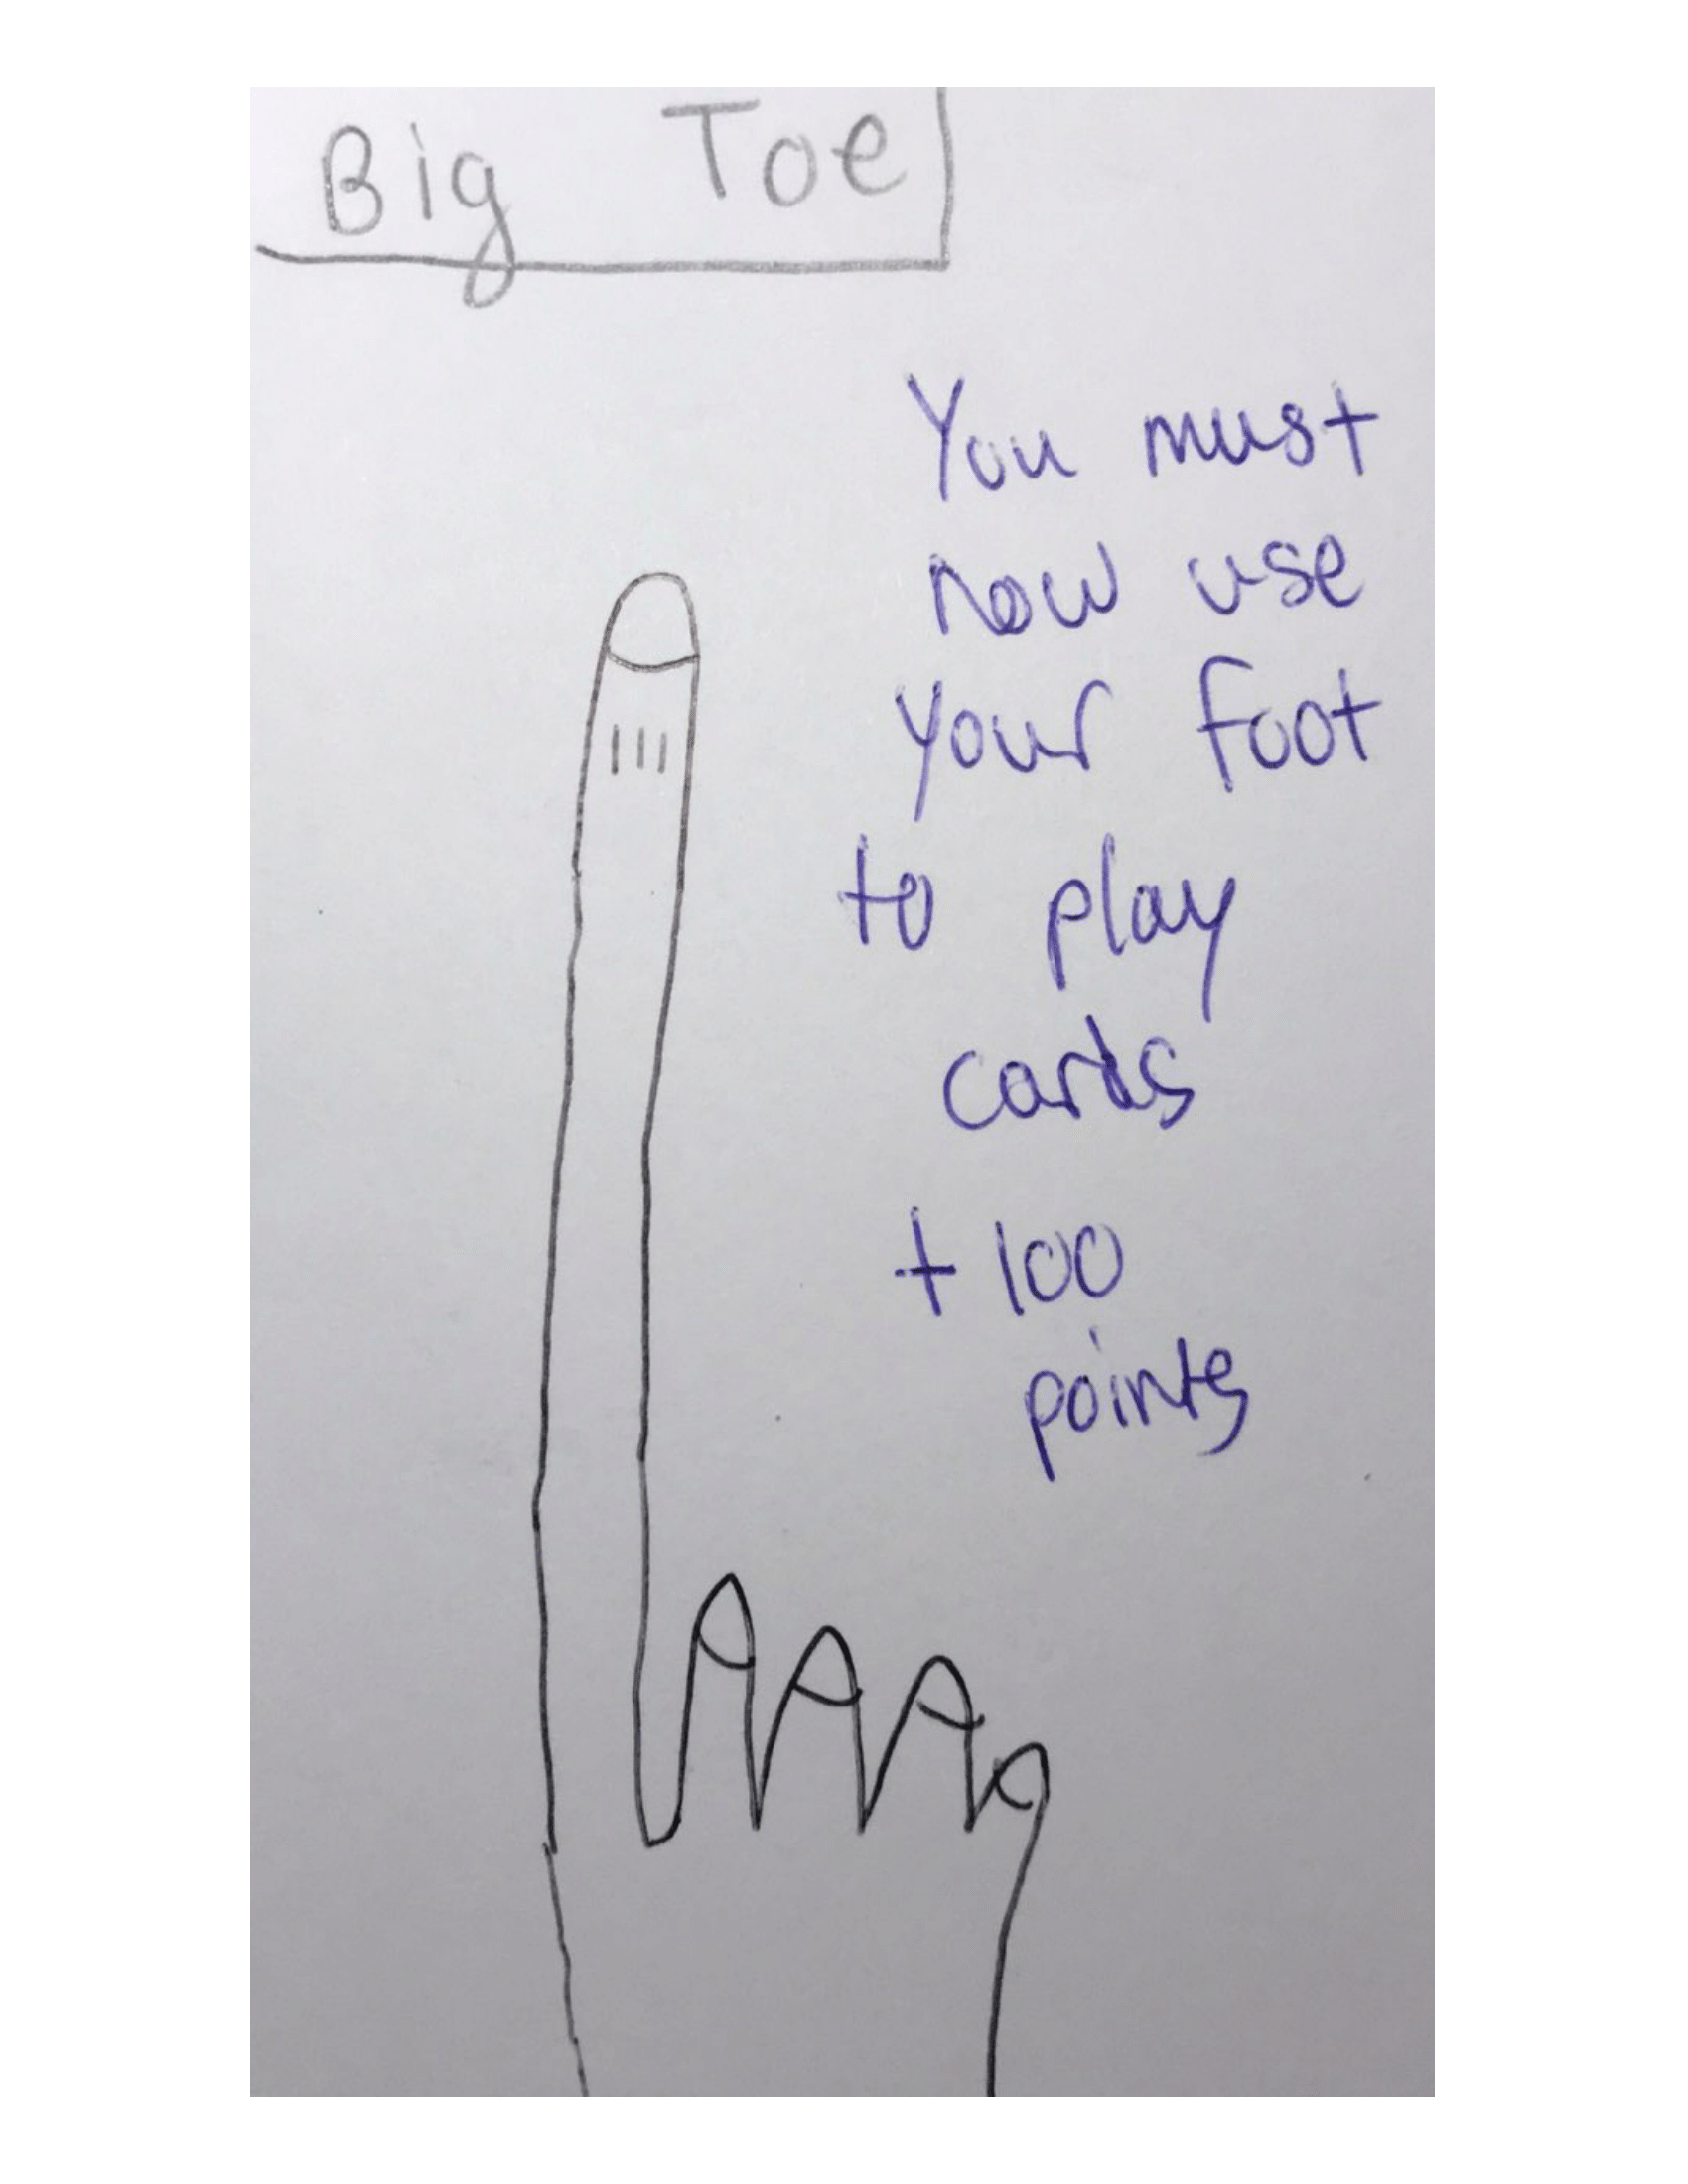 Big Toe
You must
now use
your foot
to play
cards
+100
points